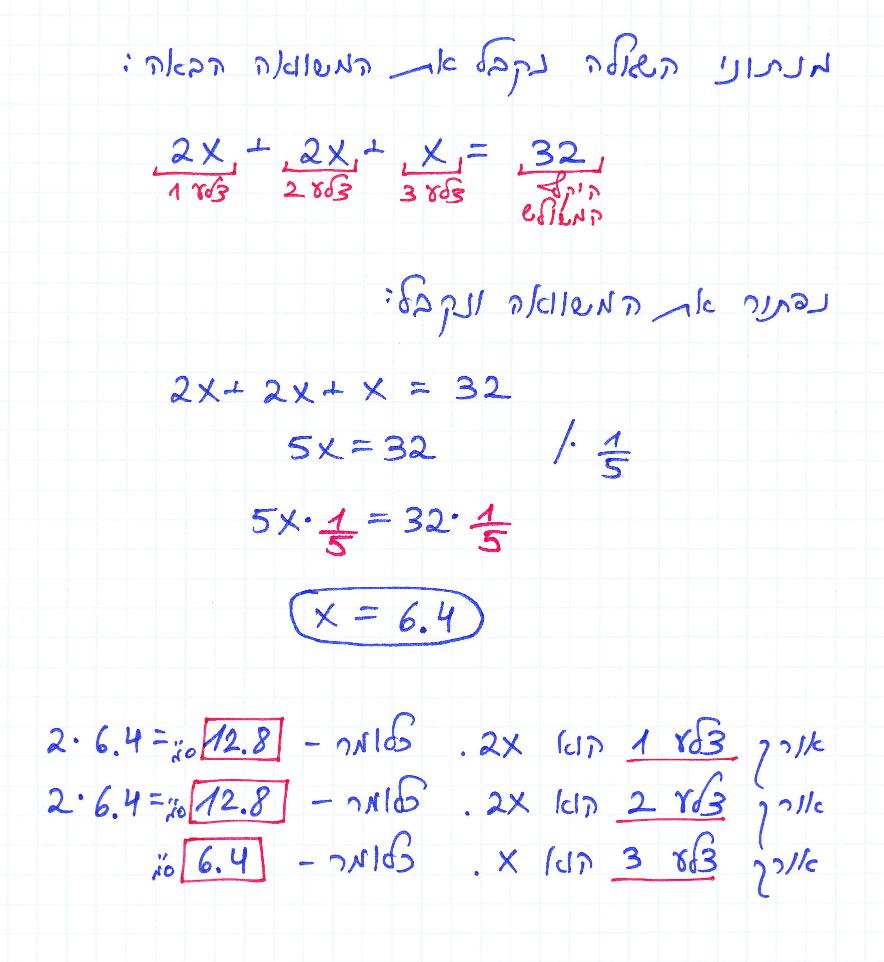 מנתוני השאלה נקבל את המשוואה הבאה:
2x + 2x + x = 32
צלע 1 צלע 2 צלע 3 היקף
המשולש
נפתור את המשוואה ונקבל:
2x + 2x + x = 32
5x = 32 /· 1/5
5x · 1/5 = 32 · 1/5
x = 6.4
אורך צלע 1 הוא 2x. כלומר - 2·6.4 = 12.8 ס"מ
אורך צלע 2 הוא 2x. כלומר - 2·6.4 = 12.8 ס"מ
אורך צלע 3 הוא x. כלומר - 6.4 ס"מ